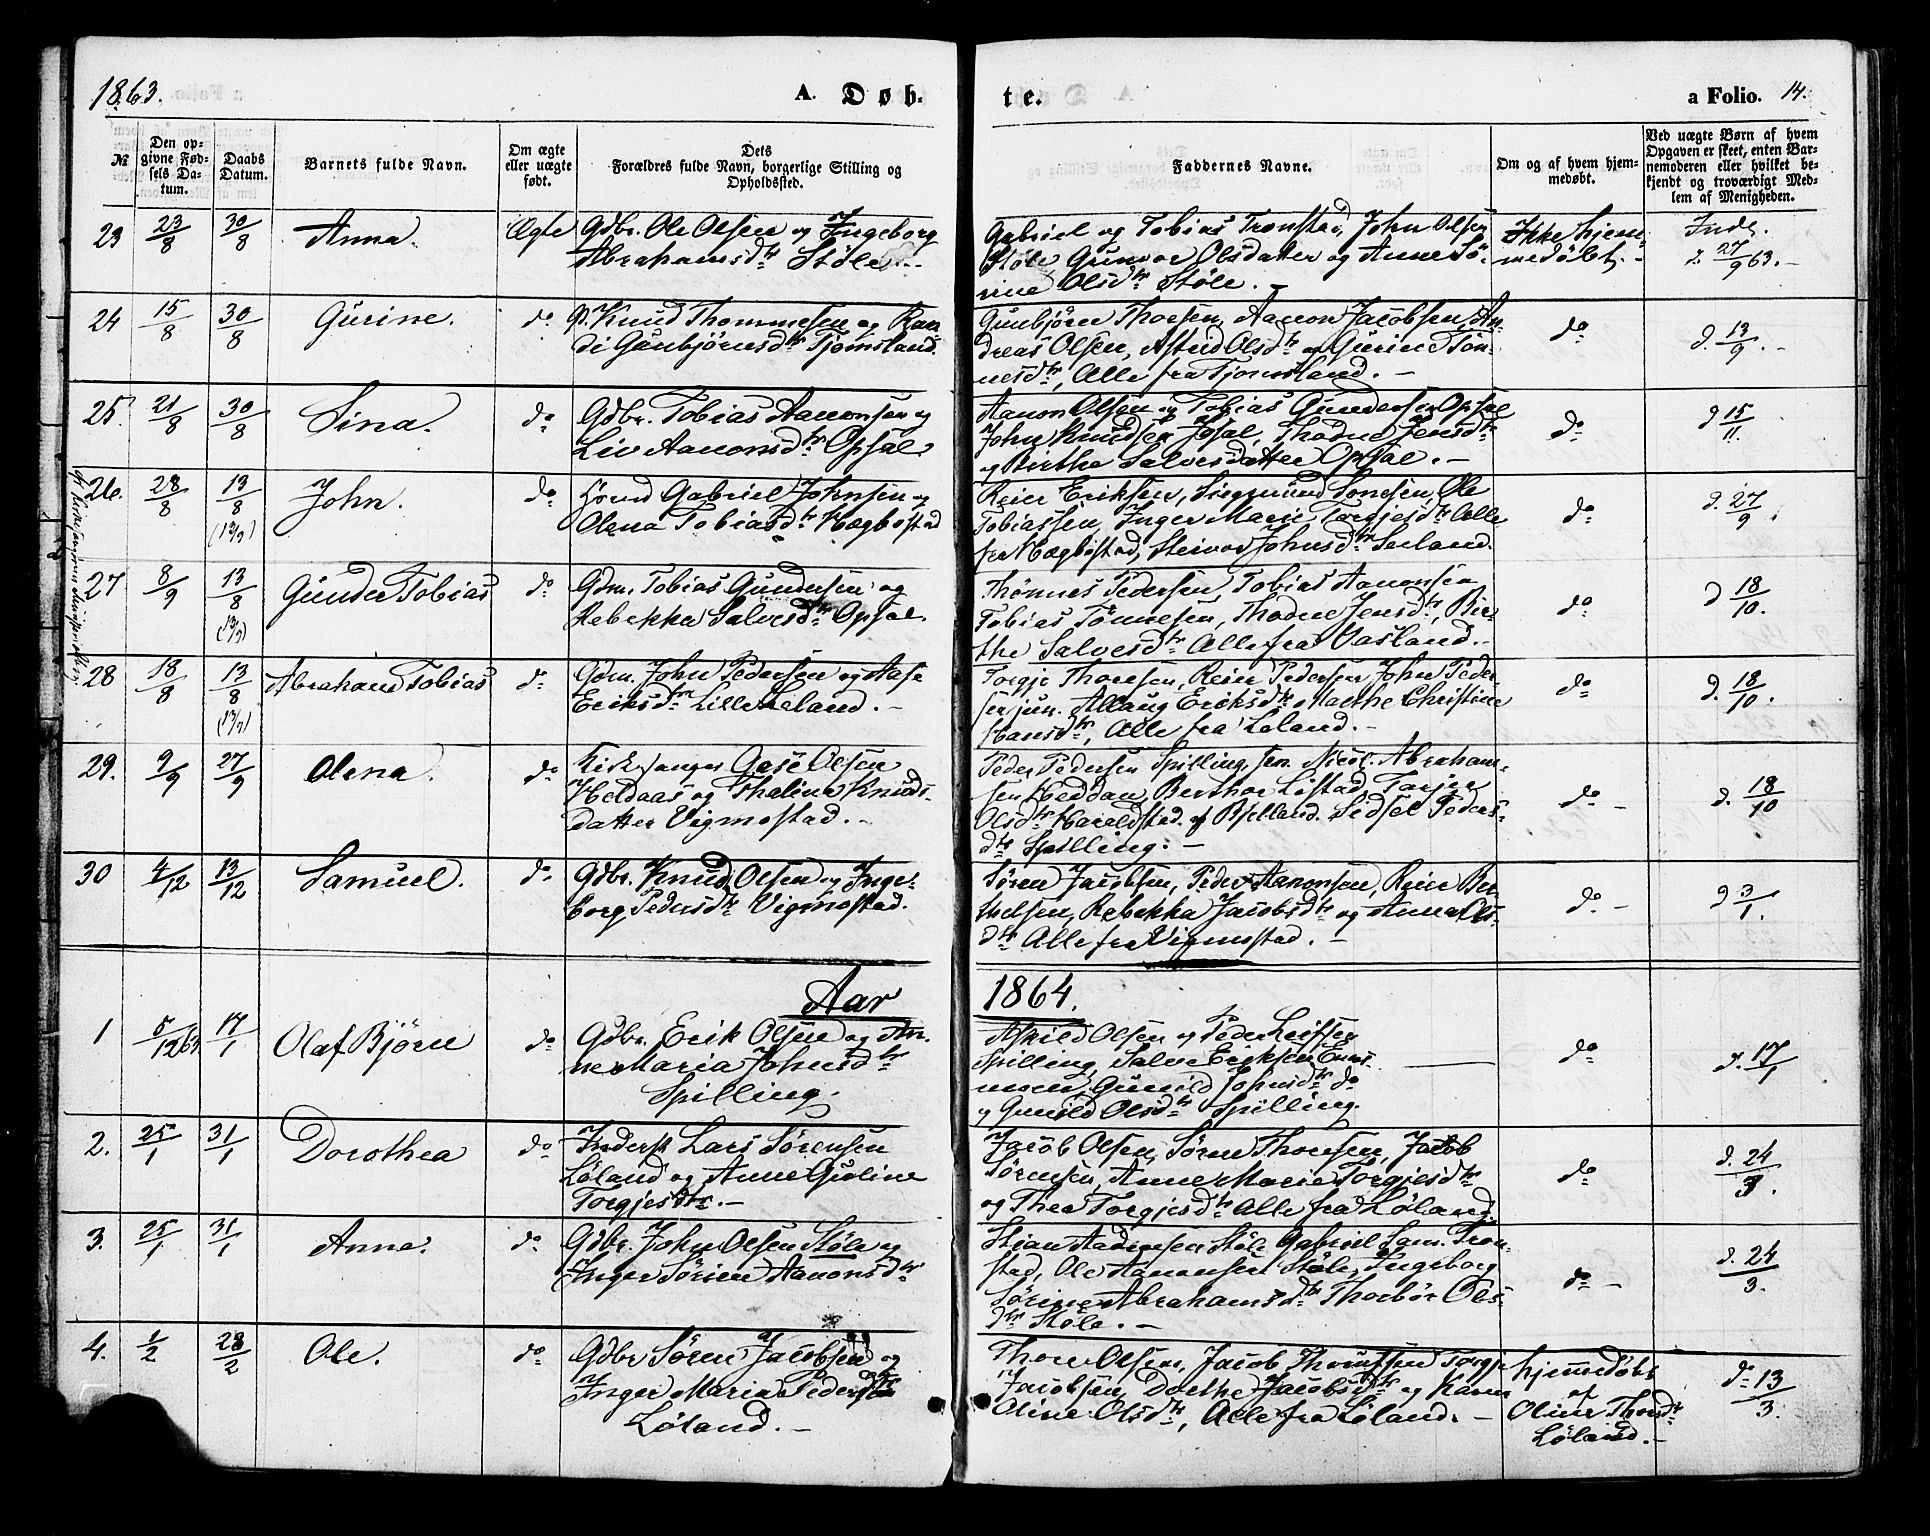 1863.
A. Døb-
te.
a Folio. 14.
№
Den op-
givne Fød-
sels Da-
tum.
Daabs
Datum.
Barnets fulde Navn.
Om ægte
eller uægte
født.
Dets
Forældres fulde Navn, borgerlige Stilling og
Opholdssted.
Faddernes Navne.
Om og af hvem hjem-
medøbt.
Ved uægte Børn af hvem
Opgaven er skeet, enten Bar-
nemoderen eller hvilket be-
kjendt og troværdigt Med-
lem af Menigheden.
23
23/8
30/8
Anna.
Ægte
Gdbr. Ole Olsen og Ingeborg
Abrahamsdtr Støle.
Gabriel og Tobias Tronstad, John Olsen
Støle, Gunvor Olsdatter og Anne Sø-
rine Olsdtr Støle. -
Ikke hjem-
medøbt. -
Indr.
d. 27/9 63. -
24
15/8
30/8
Gurine.
do
Knud Thommesen og Ran-
di Gunbjörnsdtr Tjomsland.
Gunbjörn Thorsen, Aanon Jacobsen, An-
dreas Olsen, Astrid Olsdtr og Gurine Tön-
nesdtr, Alle fra Tjomsland. -
do
d. 13/9. -
25.
21/8
30/8
Sina.
do
Gdbr. Tobias Aanonsen og
Liv Aanonsdtr Opsal.
Aanon Olsen og Tobias Gundersen Opsal
John Knudsen Josal, Thodne Jensdtr
og Birthe Salvesdatter Opsal. -
do
d 15/11.
26.
28/8
13/8
(13/9)
John.
do
Gabriel Johnsen og
Olena Tobiasdtr Hægbostad
Reier Eriksen, Siegmund Ole
Tobiassen, Inger Marie Torgjesdtr Alle
fra Hægbostad, Steinvor Johnsdtr
do
d. 27/9
27
8/9
13/8
(13/9)
Gunder Tobias
do
Gdm. Tobias Gundersen og
Rebekka Salvesdtr Opsal.
Thönnes Pedersen, Tobias Aanonsen
Tobias Tönnesen, Thodne Jensdtr, Bir-
the Salvesdtr Alle fra -
do
d 18/10.
28
18/8
13/8
(13/9)
Abraham Tobias
do
Gdm. John Pedersen og Aase
Eriksdtr Lille Leland. -
Torgje Thorsen, Reier Pedersen, John Peder-
sen jun. Allaug Eriksdtr, Marthe Christine
Hansdtr, Alle fra Leland. -
do
d. 18/10.
29.
9/9
27/9
Olena.
do
Kirkesanger Aase Olsen
Heldaas og Thaline Knuds-
datter Vigmostad. -
Peder Pedersen Spilling, sen. Nicol. Abraham-
sen Heddan, Berthor Listad, Torjer
Olsdtr Haraldstad. Bjelland. Sidsel Peders-
dtr Spilling. -
do -
d. 18/10
30
4/12
13/12
Samuel.
do.
Gdbr. Knud Olsen og Inge-
borg Pedersdtr Vigmostad.
Søren Jacobsen, Peder Aanonsen, Reier Ber-
thelsen, Rebekka Jacobsdtr og Anna Ols-
dtr Alle fra Vigmostad. -
do. -
d 3/1.
Aar
1864.
1
5/12 63
17/1
Olaf Björn
do
Gdbr. Erik Olsen og An-
ne Maria Johnsdtr
Spilling.
Askild Olsen og Peder Leifsen
Spilling, Salve Eriksen
Gunild Johnsdtr do
og Gunild Olsdtr Spilling.
do
d. 17/1
2.
25/1
31/1
Dorothea
do
Inderst Lars Sörensen
Løland og Anne Guline
Torgjesdtr. -
Jacob Olsen, Sören Thorsen, Jacob
Sörensen, Anne Marie Torgjesdtr
og Thea Torgjesdtr Alle fra Løland.
do
d. 24/3.
3.
25/1
31/1
Anna.
do
Gdbr. John Olsen Støle og
Inger Sørine Aanonsdtr
Stian Støle, Gabriel Sam. Tron-
stad, Ole Aanonsen Støle, Ingeborg
Sørine Abrahamsdtr Thorbör Ols-
dtr Støle. -
do -
d. 24/3.
4.
1/2
28/2
Ole.
do
Gdbr Sören Jacobsen og
Inger Maria Pedersdtr
Løland. -
Thore Olsen, Jacob Thomssen Torgje
Jacobsen, Dorthe Jacobsdtr og Karen
Oline Olsdtr, Alle fra Løland. -
hjemmedøbt
af
Oline Thorsdtr
Løland. -
do 13/3.